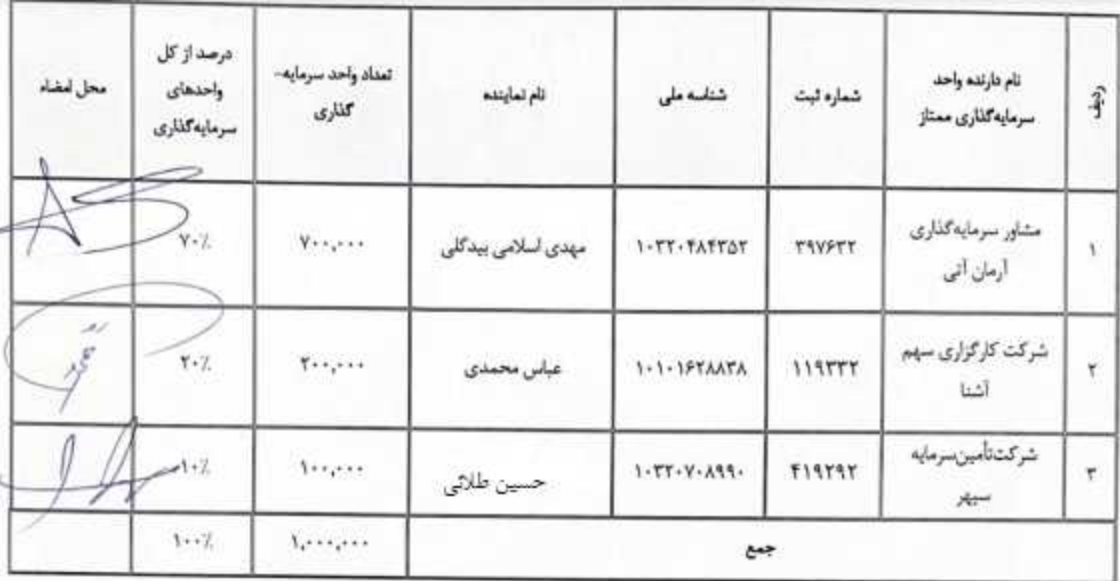 ردیف
نام دارنده واحد
سرمایه‌گذاری ممتاز
شماره ثبت
شناسه ملی
نام نماینده
تعداد واحد سرمایه-
گذاری
درصد از کل
واحدهای
سرمایه‌گذاری
محل امضاء
۱
مشاور سرمایه‌گذاری
آرمان آتی
۳۹۷۶۳۲
۱۰۳۲۰۴۸۴۳۵۲
مهدی اسلامی بیدگلی
۷۰۰,۰۰۰
۷۰٪
۲
شرکت کارگزاری سهم
آشنا
۱۱۹۳۳۲
۱۰۱۰۱۶۲۸۸۳۸
عباس محمدی
۲۰۰,۰۰۰
۲۰٪
۳
شرکت‌تأمین‌سرمایه
سپهر
۴۱۹۲۹۲
۱۰۳۲۰۷۰۸۹۹۰
حسین طلائی
۱۰۰,۰۰۰
۱۰٪
جمع
۱,۰۰۰,۰۰۰
۱۰۰٪